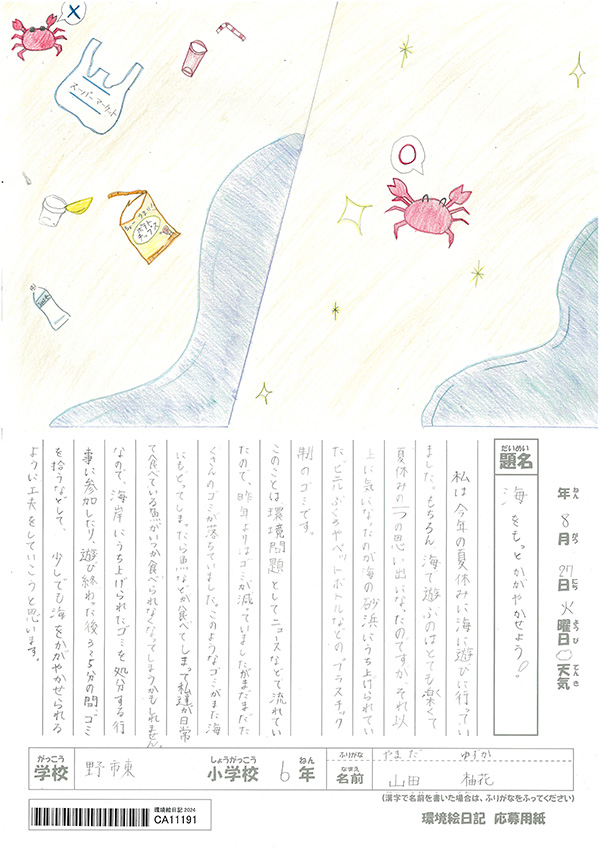 ×
スーパーマーケット
ポテトチップス
○
年 8月 27日 火曜日 ○天気
ねん がつ にち ようび てんき
だいめい
題名
海をもっとかがやかせよう!
私は今年の夏休みに海に遊びに行ってい
ました。もちろん海で遊ぶのはとても楽しくて
夏休みの一つの思い出になったのですが、それ以
上に気になったのが海の砂浜にうち上げられてい
た、ビニルぶくろやペットボトルなどのプラスチック
制のゴミです。
このことは環境問題としてニュースなどで流れてい
たので、昨年よりはゴミが減っていましたがまだまだた
くさんのゴミが落ちていました。このようなゴミがまた海
にもどってしまったら魚などが食べてしまって私達が日常
で食べている魚がいつか食べられなくなってしまうかもしれません。
なので、海岸にうち上げられたゴミを処分する行
事に参加したり、遊び終わった後3~5分の間、ゴミ
を拾うなどして、少しでも海をかがやかせられる
ように工夫をしていこうと思います。
がっこう しょうがっこう ねん
学校 野市東 小学校 6年
ふりがな やまだ ゆずか
なまえ
名前 山田 柚花
(漢字で名前を書いた場合は、ふりがなをふってください)
環境絵日記2024
CA11191
環境絵日記 応募用紙